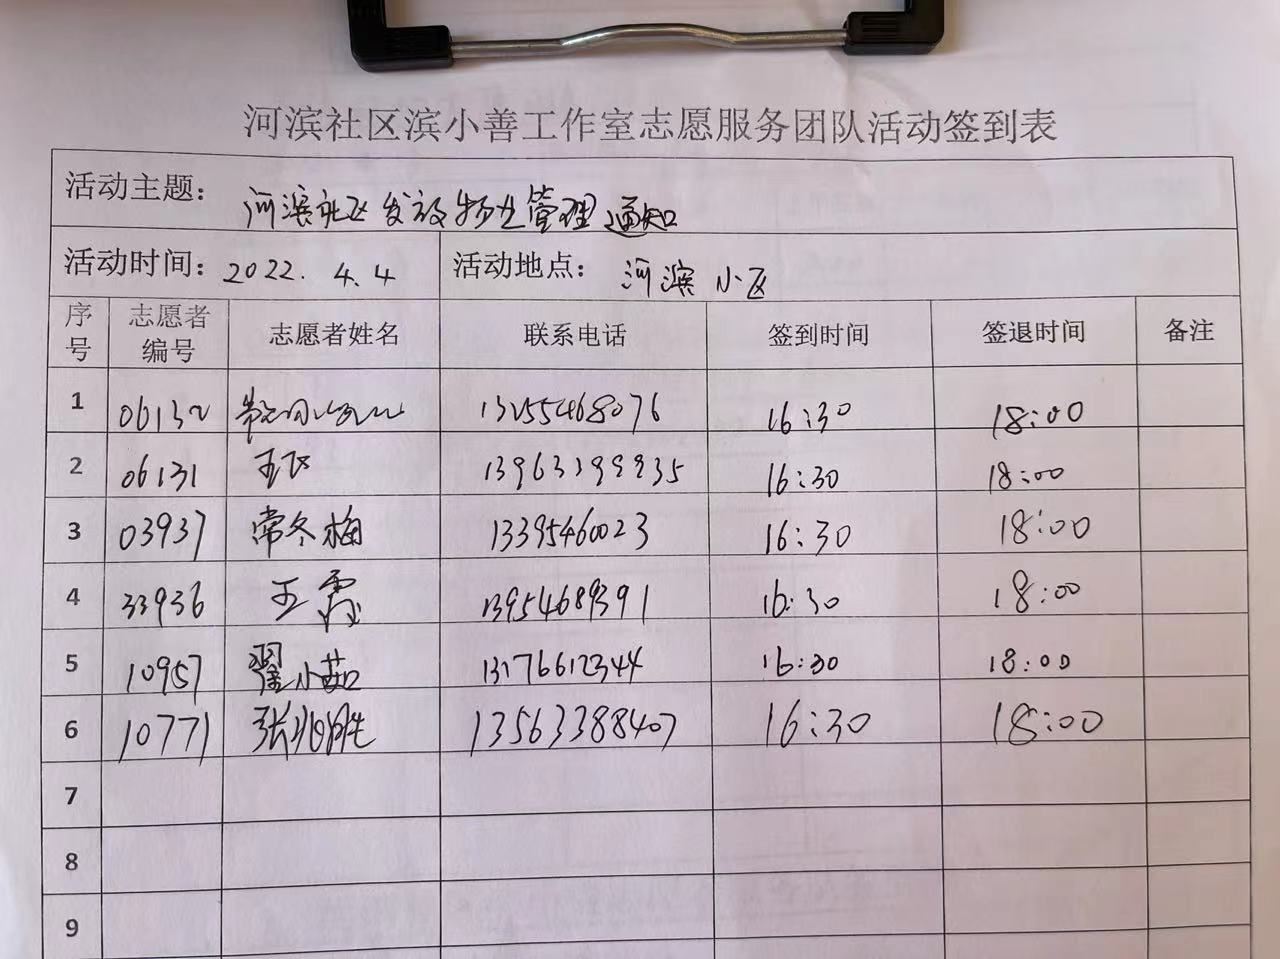 河滨社区滨小善工作室志愿服务团队活动签到表
活动主题： 河滨社区发放物业管理通知
活动时间：2022.4.4 活动地点： 河滨小区
序号 志愿者编号 志愿者姓名 联系电话 签到时间 签退时间 备注
1 06132 13255468076 16:30 18:00
2 06131 王飞 16:30 18:00
3 03937 常冬梅 13395460023 16:30 18:00
4 33936 王霞 13954689391 16:30 18:00
5 10957 翟小茹 13176612344 16:30 18:00
6 10771 张兆胜 13563388407 16:30 18:00
7
8
9